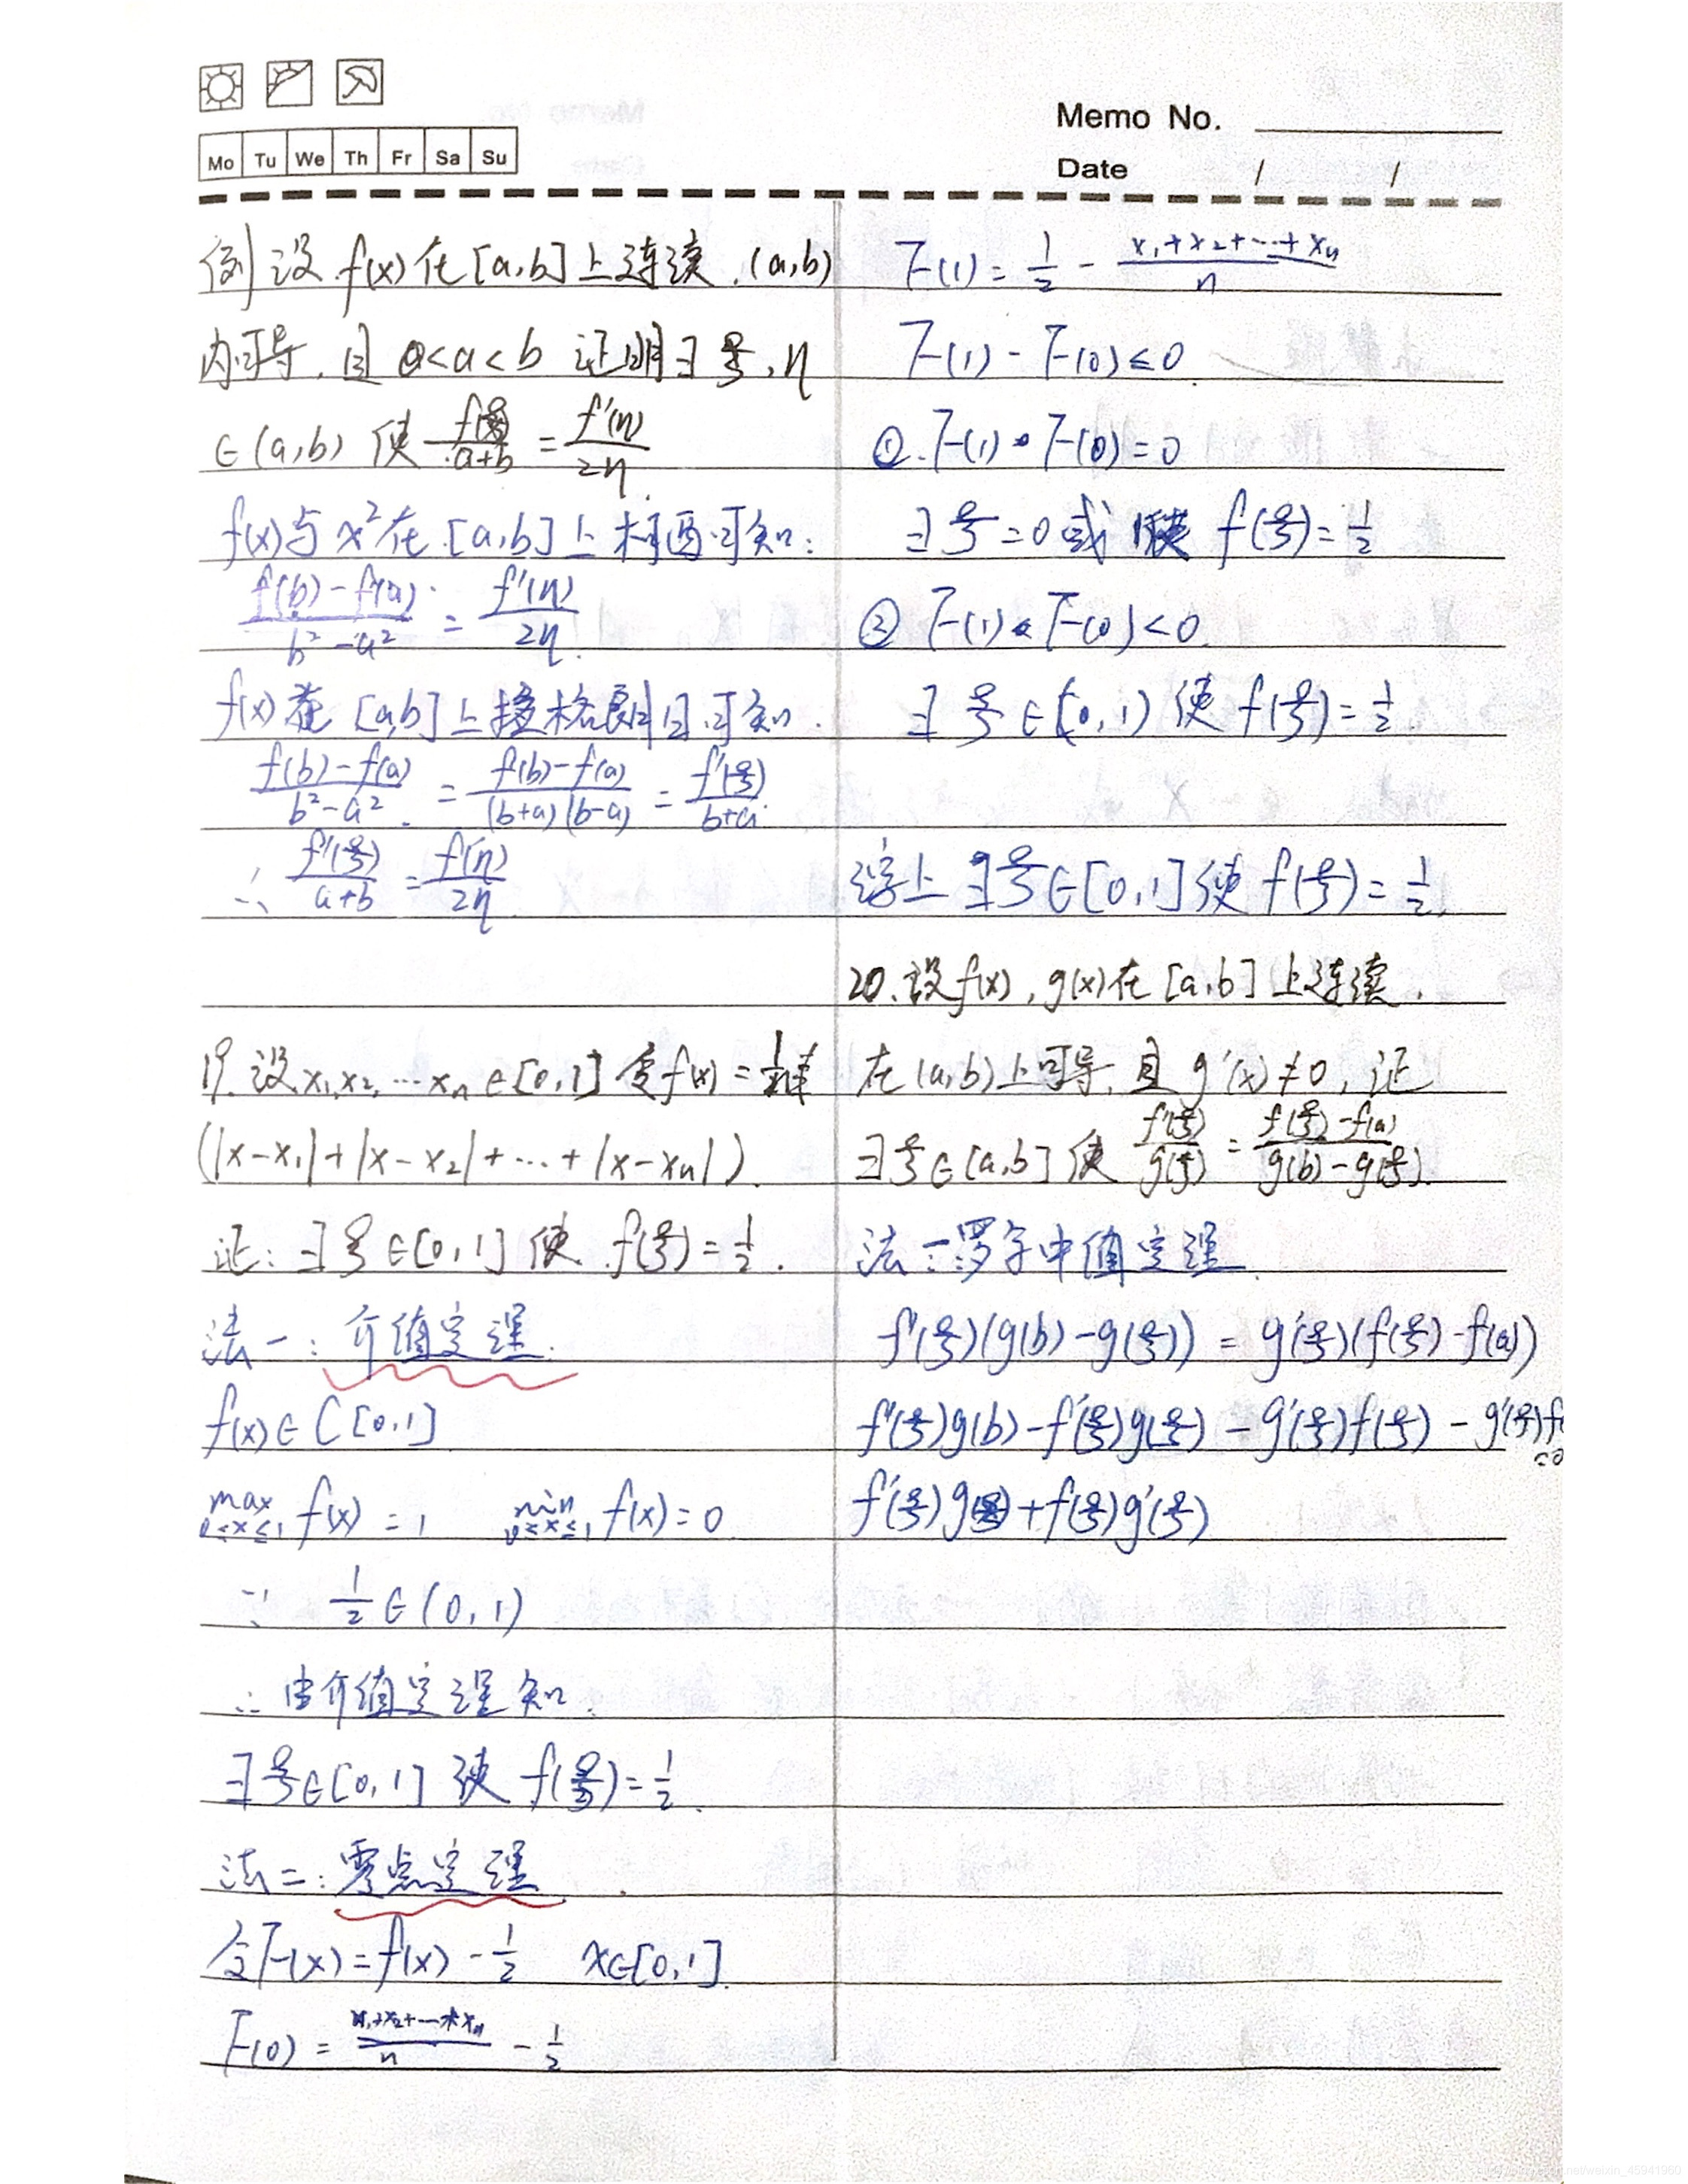 Mo Tu We Th Fr Sa Su
Memo No.
Date / /
例 设 f(x) 在 [a,b] 上连续, (a,b)
内可导, 且 0<a<b 证明∃ξ,η
∈(a,b) 使 f'(ξ)/(a+b) = f'(η)/2η.
f(x)与 x²在 [a,b] 上柯西可知:
(f(b)-f(a))/(b²-a²) = f'(η)/2η.
f(x) 在 [a,b] 上拉格朗日可知.
(f(b)-f(a))/(b²-a²) = (f(b)-f(a))/((b+a)(b-a)) = f'(ξ)/(b+a)
∴ f'(ξ)/(a+b) = f'(η)/2η
19. 设x₁,x₂,…xₙ∈[0,1] f(x) = 1/n
(|x-x₁|+|x-x₂|+…+|x-xₙ|).
证: ∃ξ∈[0,1] 使 f(ξ)=1/2.
法一: 介值定理.
f(x)∈C[0,1]
max 0≤x≤1 f(x)=1 min 0≤x≤1 f(x)=0
∵ 1/2∈(0,1)
∴ 由介值定理知.
∃ξ∈[0,1] 使 f(ξ)=1/2.
法二: 零点定理.
令F(x)=f(x)-1/2 x∈[0,1].
F(0) = (x₁+x₂+…+xₙ)/n - 1/2
F(1) = 1/2 - (x₁+x₂+…+xₙ)/n
F(1)·F(0)≤0.
①.F(1)·F(0)=0
∃ξ=0或1使 f(ξ)=1/2
② F(1)·F(0)<0.
∃ξ∈(0,1) 使 f(ξ)=1/2.
综上 ∃ξ∈[0,1]使 f(ξ)=1/2.
20.设f(x),g(x)在[a,b]上连续.
在(a,b)上可导,且 g'(x)≠0,证
∃ξ∈[a,b] 使 f'(ξ)/g'(ξ) = (f(ξ)-f(a))/(g(b)-g(ξ)).
法一:罗尔中值定理.
f'(ξ)(g(b)-g(ξ)) = g'(ξ)(f(ξ)-f(a))
f'(ξ)g(b)-f'(ξ)g(ξ)-g'(ξ)f(ξ)-g'(ξ)f(
=0
f'(ξ)g(ξ)+f(ξ)g'(ξ)